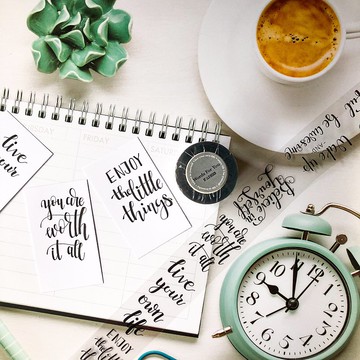 FRIDAY
live
your
you are
worth
it all
ENJOY
the little
things
you are
worth
it all
live
your
own
life
ENJOY
the little
things
Believe
in
Yourself
Wake up
and be awesome
12
1
2
3
4
5
6
7
8
9
10
11